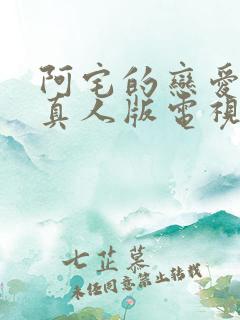 阿宅的戀愛
真人版電視
七芷慕
未任同意禁止轉載